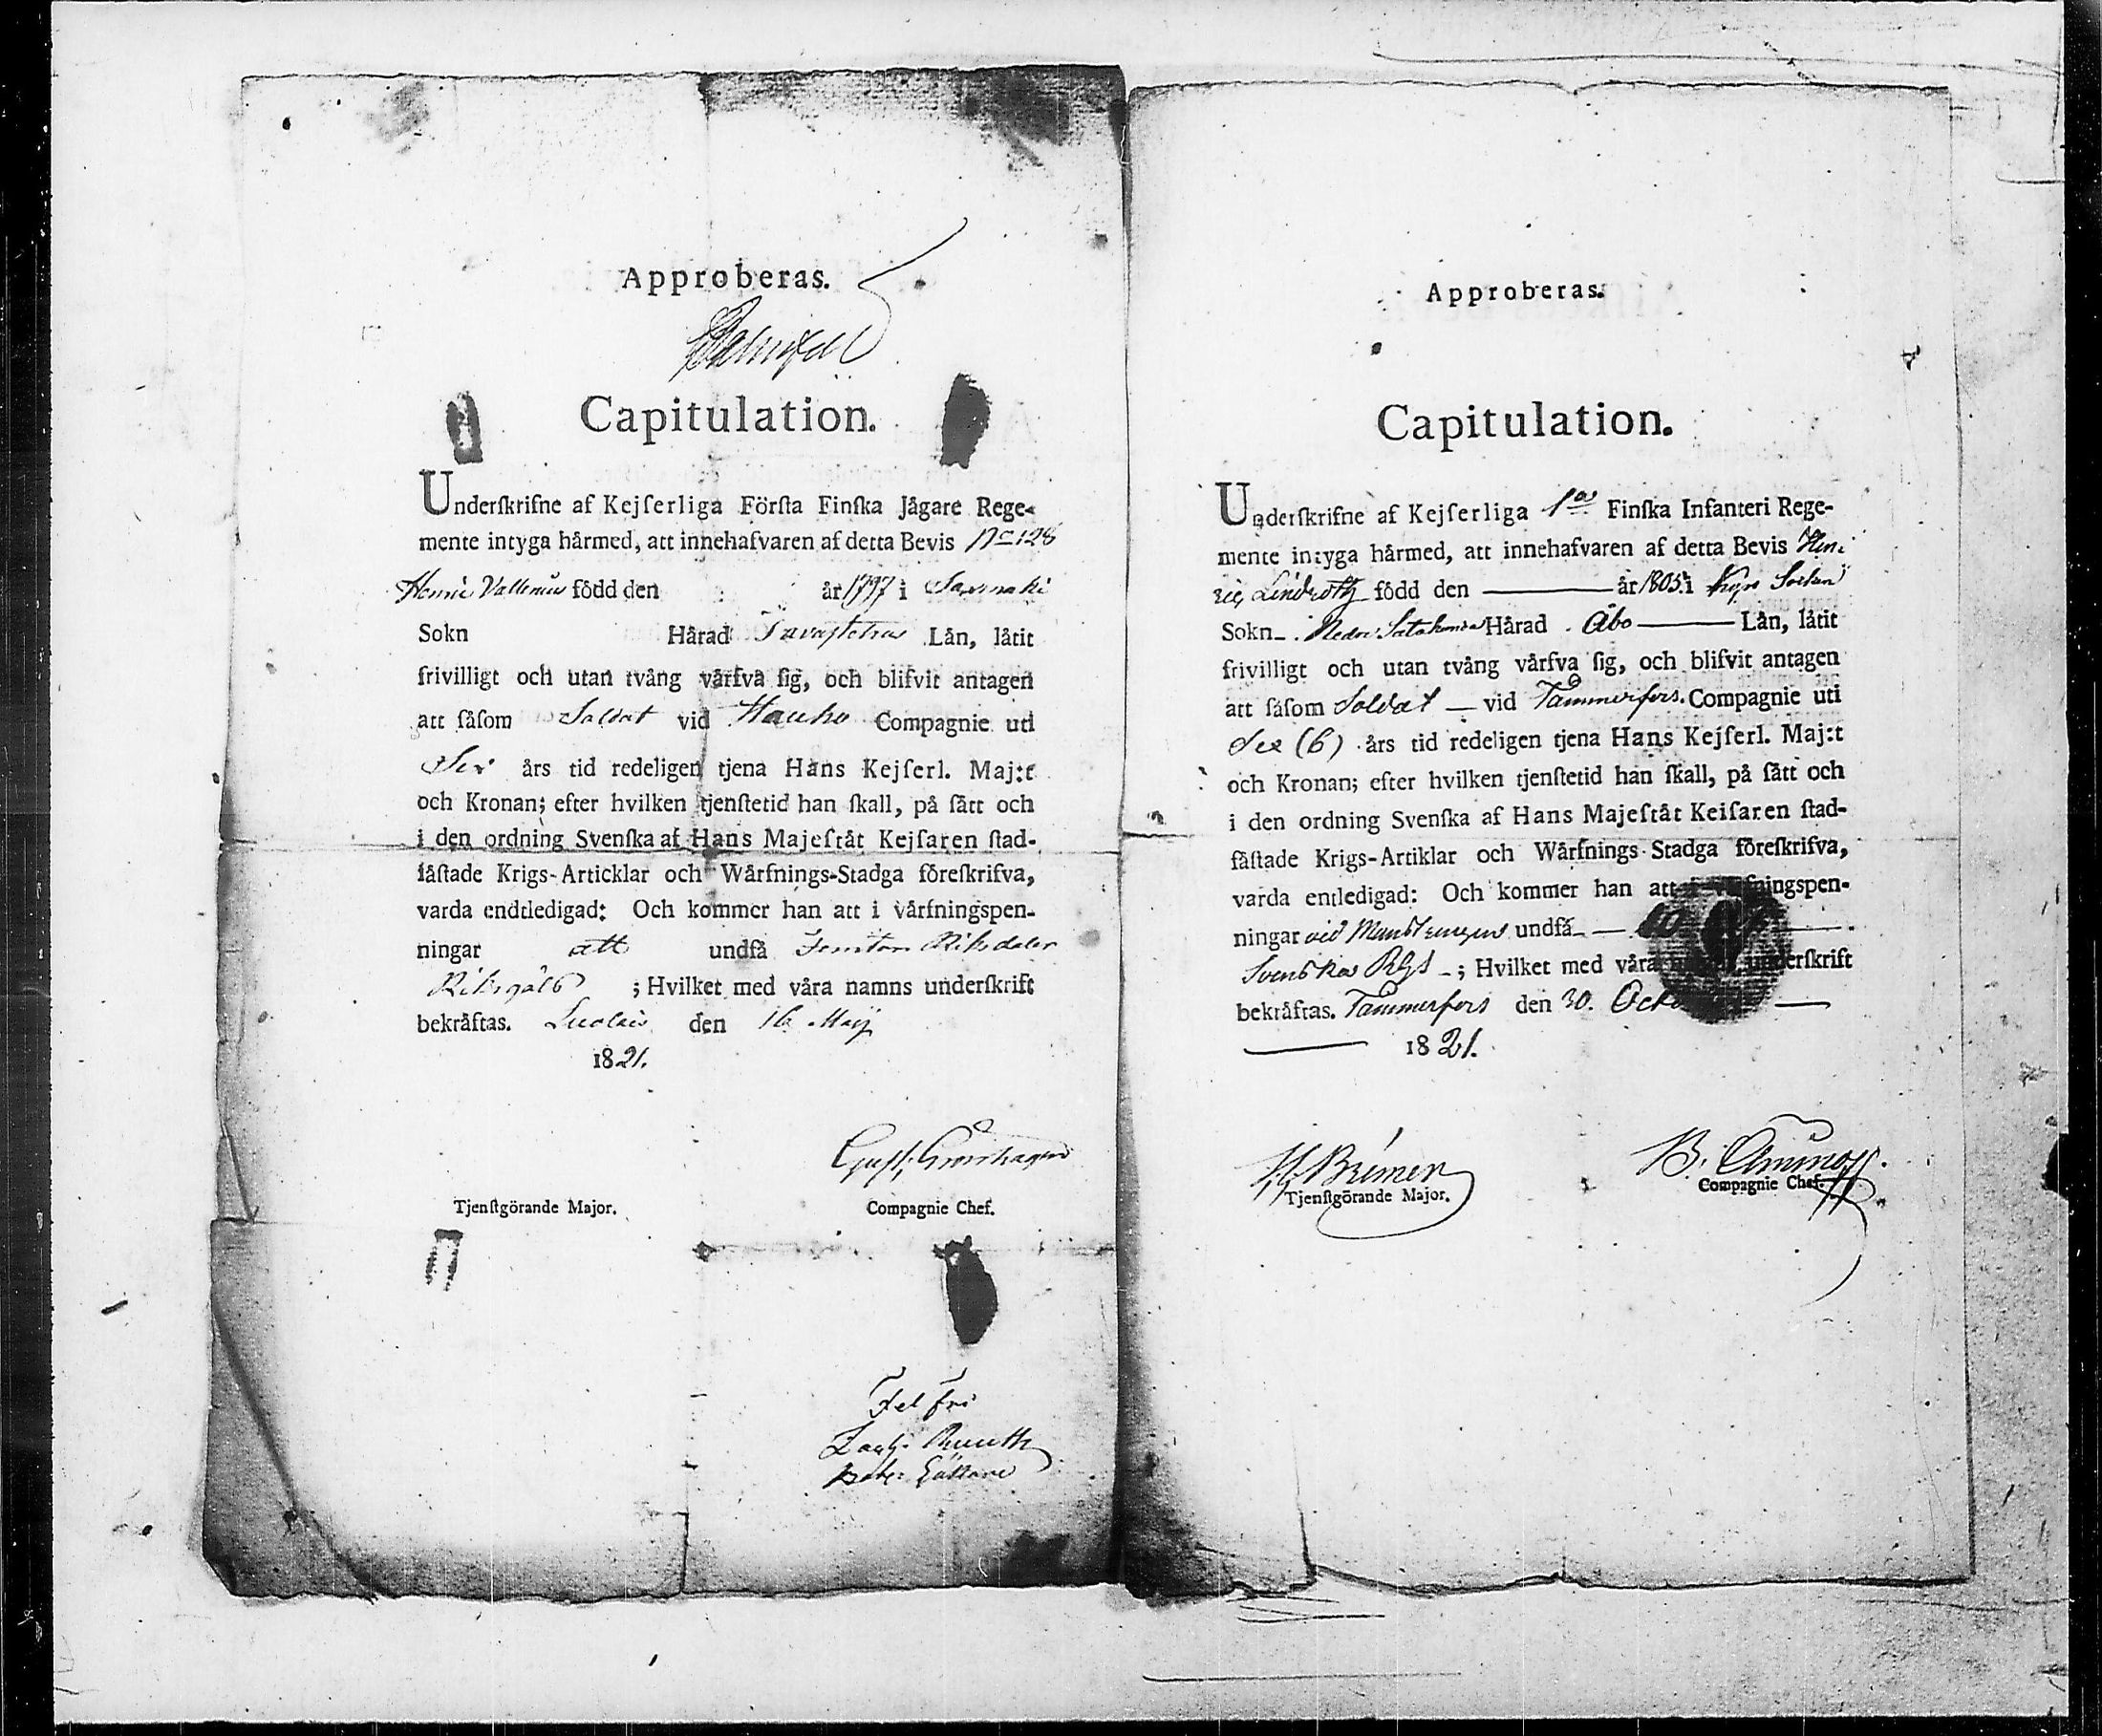 Approberas.
Capitulation.
Underſkrifne af Kejſerliga Förſta Finſka Jågare Rege-
mente intyga hårmed, att innehafvaren af detta Bevis No 128
Henric Vallenius född den år 1797 i
Sokn Hårad Tavastehus Lån, låtit
frivilligt och utan tvång vårfva ſig, och blifvit antagen
att ſåſom Soldat vid Hauho Compagnie uti
Sex års tid redeligen tjena Hans Kejſerl. Maj:t
och Kronan; efter hvilken tjenſtetid han ſkall, på ſått och
i den ordning Svenſka af Hans Majeſtåt Kejſaren ſtad-
fåſtade Krigs-Articklar och Wårfnings-Stadga föreſkrifva,
varda endtledigad: Och kommer han att i vårfningspen-
ningar att undfå Femton Riksdaler
Riksgålds ; Hvilket med våra namns underſkrift
bekråftas. den 16 Maij
1821.
Tjenſtgörande Major. Compagnie Chef.
Fel fri
Approberas.
Capitulation.
Underſkrifne af Kejſerliga 1a Finſka Infanteri Rege-
mente intyga hårmed, att innehafvaren af detta Bevis Hen-
ric Lindroth född den år 1805 i Kyro Sockn
Sokn Nedre Satakunda Hårad Åbo Lån, låtit
frivilligt och utan tvång vårfva ſig, och blifvit antagen
att ſåſom Soldat vid Tammerfors Compagnie uti
Sex (6) års tid redeligen tjena Hans Kejſerl. Maj:t
och Kronan; efter hvilken tjenſtetid han ſkall, på ſått och
i den ordning Svenſka af Hans Majeſtåt Keiſaren ſtad-
fåſtade Krigs-Artiklar och Wårfnings-Stadga föreſkrifva,
varda entledigad: Och kommer han att i vårfningspen-
ningar vid Mönstringen undfå
Svenska Rgs ; Hvilket med våra underſkrift
bekråftas. Tammerfors den 30. Octo
1821.
Brémer B. Aminoff.
Tjenſtgörande Major. Compagnie Chef.